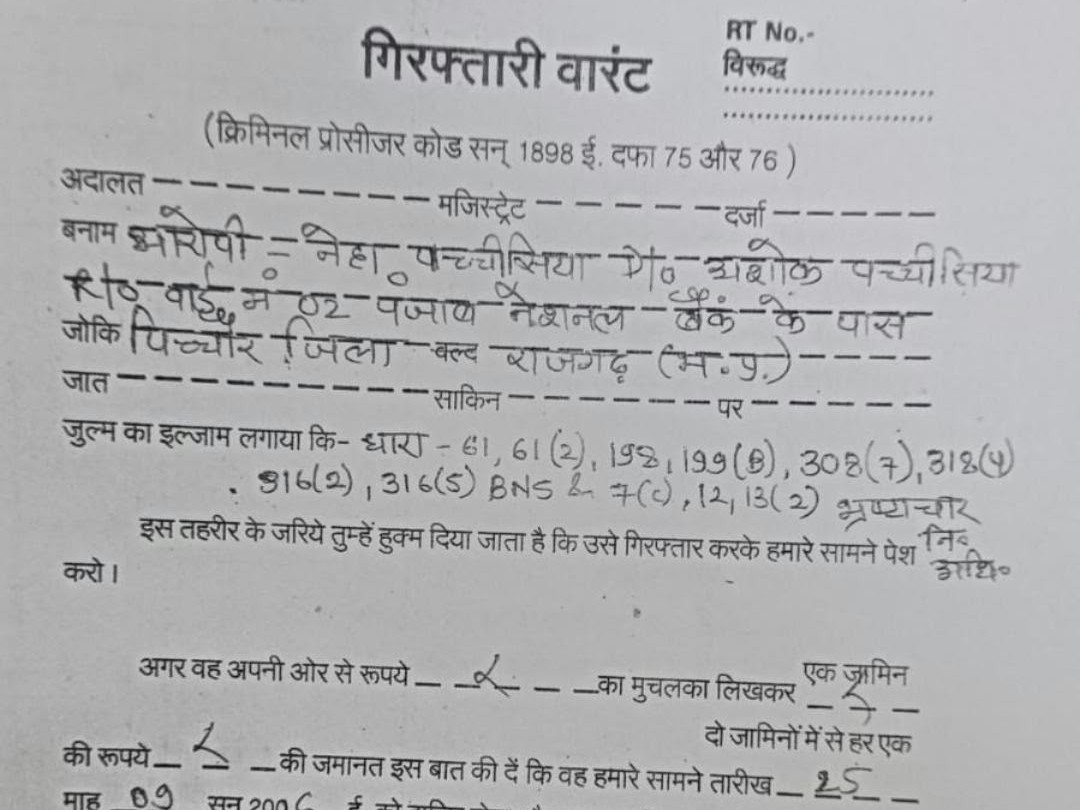 RT No.-
गिरफ्तारी वारंट
विरूद्ध
(क्रिमिनल प्रोसीजर कोड सन् 1898 ई. दफा 75 और 76 )
अदालत मजिस्ट्रेट दर्जा
बनाम आरोपी - नेहा पच्चीसिया अशोक पच्चीसिया
R/o वार्ड नं 02 पंजाब नेशनल बैंक के पास
जोकि जिला वल्द राजगढ़ (म.प्र.)
जात साकिन पर
जुल्म का इल्जाम लगाया कि- धारा - 61, 61(2), 198, 199(B), 308(7), 318(4)
316(2), 316(5) BNS & 7(c), 12, 13(2) भ्रष्टाचार
इस तहरीर के जरिये तुम्हें हुक्म दिया जाता है कि उसे गिरफ्तार करके हमारे सामने पेश नि०
करो। अधि०
अगर वह अपनी ओर से रूपये का मुचलका लिखकर एक जामिन
दो जामिनों में से हर एक
की रूपये की जमानत इस बात की दें कि वह हमारे सामने तारीख 25
माह 09 सन् 200